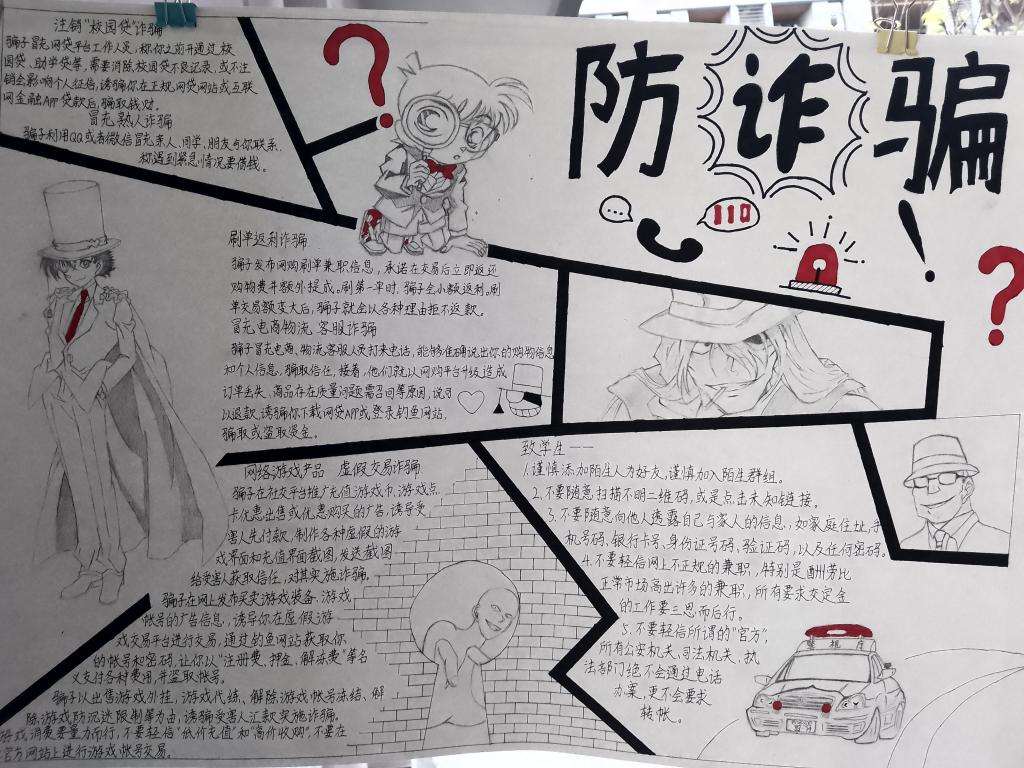 注销"校园贷"诈骗
骗子冒充网贷平台工作人员,称你之前开通过校
园贷、助学贷等,需要消除校园贷不良记录,或不注
销会影响个人征信,诱骗你在正规网贷网站或互联
网金融APP贷款后,骗取钱财。
冒充熟人诈骗
骗子利用QQ或者微信冒充亲人、同学、朋友与你联系,
称遇到紧急情况要借钱。
防诈骗!
110
刷单返利诈骗
骗子发布网购刷单兼职信息,承诺在交易后立即返还
购物费并额外提成。刷第一单时,骗子会小额返利。刷
单交易额变大后,骗子就会以各种理由拒不返款。
冒充电商物流、客服诈骗
骗子冒充电商、物流客服人员打来电话,能够准确说出你的购物信息
和个人信息,骗取信任,接着,他们就以网购平台升级造成
订单丢失、商品存在质量问题需召回等原因,说可
以退款,诱骗你下载网贷APP或登录钓鱼网站,
骗取或盗取资金。
网络游戏产品 虚假交易诈骗
骗子在社交平台推广充值游戏币、游戏点
卡优惠出售或优惠购买的广告,诱导受
害人先付款,制作各种虚假的游
戏界面和充值界面截图,发送截图
给受害人获取信任,对其实施诈骗。
骗子在网上发布买卖游戏装备、游戏
帐号的广告信息,诱导你在虚假游
戏交易平台进行交易,通过钓鱼网站获取你
的帐号和密码,让你以"注册费、押金、解冻费"等名
义支付各种费用,并盗取帐号。
骗子以出售游戏外挂,游戏代练、解除游戏帐号冻结、解
除游戏防沉迷限制等为由,诱骗受害人汇款实施诈骗。
游戏消费要量力而行,不要轻信"低价充值"和"高价收购",不要在
官方网站上进行游戏帐号交易。
致学生——
1.谨慎添加陌生人为好友,谨慎加入陌生群组。
2.不要随意扫描不明二维码,或是点击未知链接。
3.不要随意向他人透露自己与家人的信息,如家庭住址,手
机号码、银行卡号、身份证号码、验证码,以及任何密码。
4.不要轻信网上不正规的兼职,特别是酬劳比
正常市场高出许多的兼职,所有要求交定金
的工作要三思而后行。
5.不要轻信所谓的"官方",
所有公安机关、司法机关、执
法部门绝不会通过电话
办案,更不会要求
转帐。
警视庁